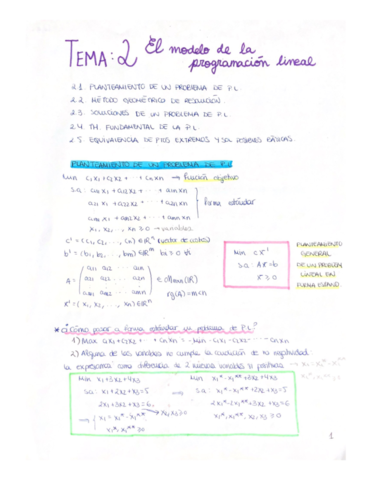 TEMA: 2 El modelo de la
programación lineal
2.1. PLANTEAMIENTO DE UN PROBLEMA DE P.L.
2.2. MÉTODO GEOMÉTRICO DE RESOLUCIÓN.
2.3. SOLUCIONES DE UN PROBLEMA DE P.L.
2.4. TH. FUNDAMENTAL DE LA P.L.
2.5. EQUIVALENCIA DE PTOS EXTREMOS Y SOL. POSIBLES BÁSICAS.
PLANTEAMIENTO DE UN PROBLEMA DE P.L
Min c1x1 + c2x2 + ... + cnxn → función objetivo
s.a: a11x1 + a12x2 + ... + a1nxn
a21x1 + a22x2 + ... + a2nxn
forma estándar
am1x1 + am2x2 + ... + amnxn
x1, x2, ..., xn ≥ 0 → variables
c^t = (c1, c2, ..., cn) ∈ R^n (vector de costes)
b^t = (b1, b2, ..., bm) ∈ R^m bi ≥ 0 ∀i
A = ( a11 a12 ... a1n
a21 a22 ... a2n
am1 am2 ... amn ) ∈ Mmxn(R)
rg(A) = m < n
x^t = (x1, x2, ..., xn) ∈ R^n
Min c^t x
s.a: Ax = b
x ≥ 0
PLANTEAMIENTO
GENERAL
DE UN PROBLEMA
LINEAL EN
FORMA ESTÁNDAR
* ¿Cómo pasar a forma estándar un problema de P.L?
1) Max c1x1 + c2x2 + ... + cnxn = -Min -c1x1 - c2x2 - ... - cnxn
2) Alguna de las variables no cumple la condición de no negatividad
la expresamos como diferencia de 2 nuevas variables sí positivas
Min x1 + 3x2 + 4x3
s.a: x1 + 2x2 + x3 = 5
2x1 + 3x2 + x3 = 6
x2, x3 ≥ 0
x1 = x1* - x1**
x1*, x1** ≥ 0
Min x1* - x1** + 3x2 + 4x3
s.a: x1* - x1** + 2x2 + x3 = 5
2x1* - 2x1** + 3x2 + x3 = 6
x1*, x1**, x2, x3 ≥ 0
1